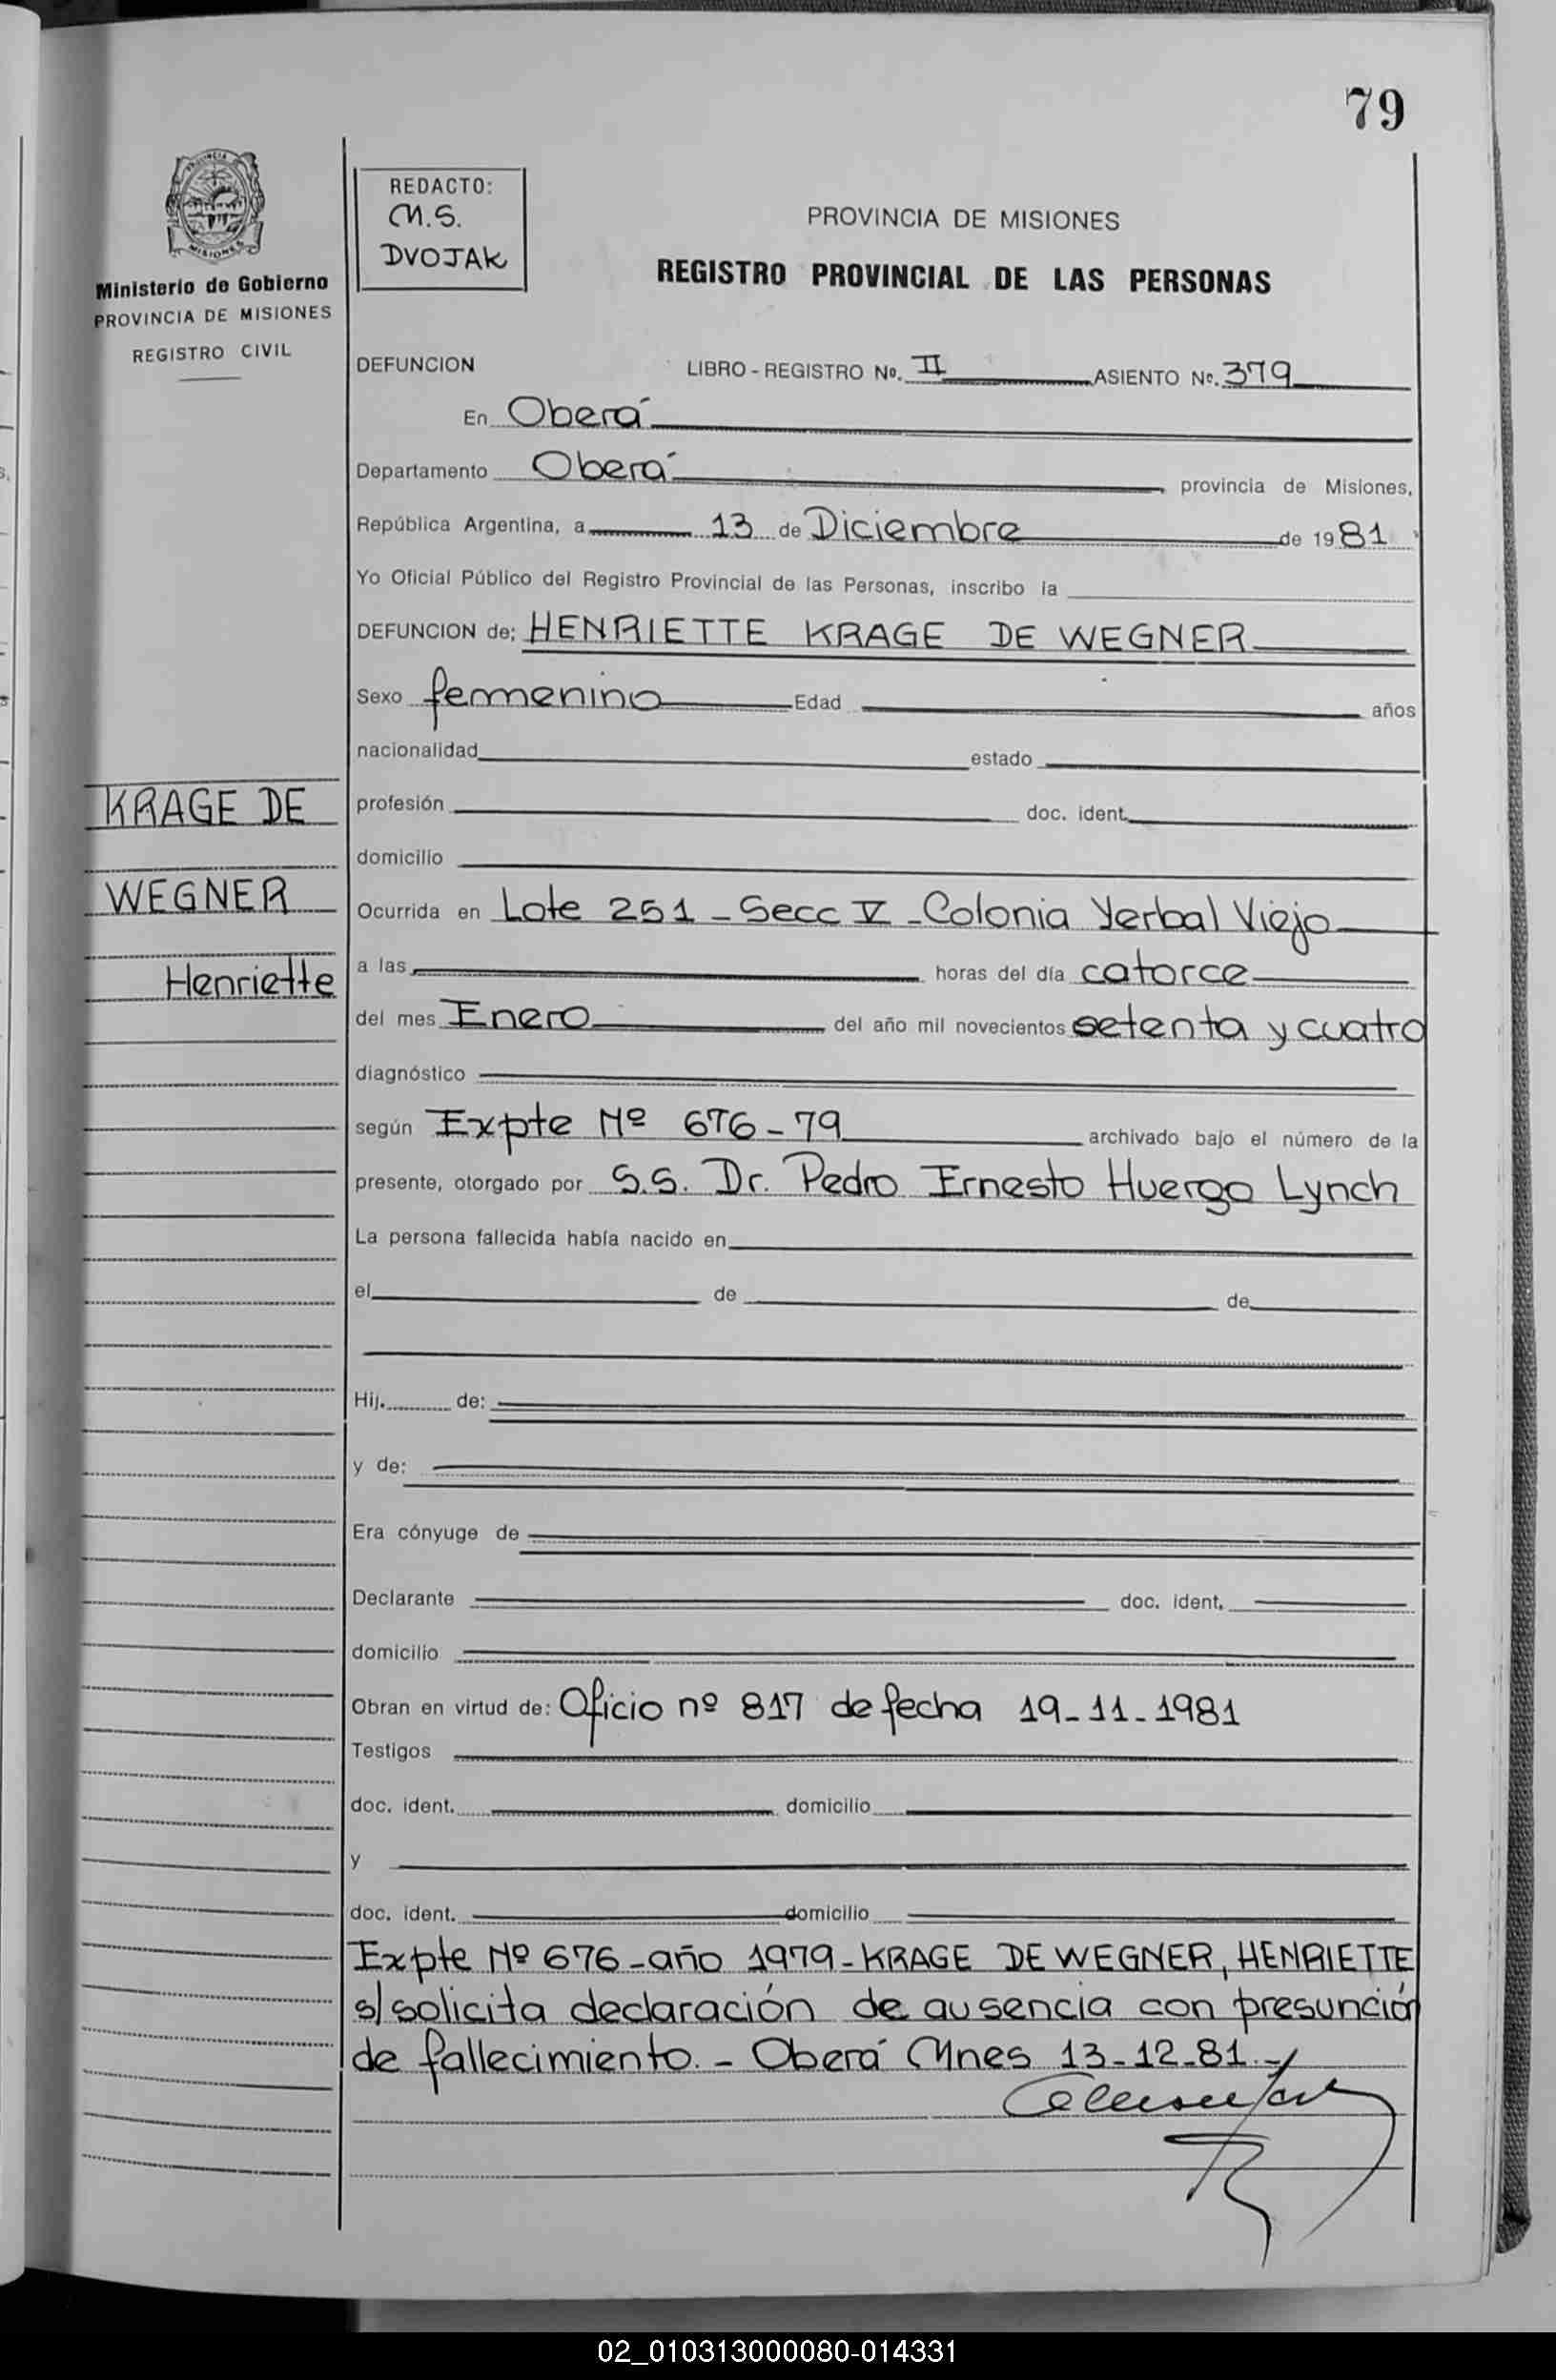 79
PROVINCIA
MISIONES
Ministerio de Gobierno
PROVINCIA DE MISIONES
REGISTRO CIVIL
REDACTO:
M.S.
DVOJAK
PROVINCIA DE MISIONES
REGISTRO PROVINCIAL DE LAS PERSONAS
DEFUNCION LIBRO - REGISTRO Nº. II ASIENTO Nº. 379
En Oberá
Departamento Oberá provincia de Misiones,
República Argentina, a 13 de Diciembre de 1981
Yo Oficial Público del Registro Provincial de las Personas, inscribo la
DEFUNCION de: HENRIETTE KRAGE DE WEGNER
Sexo femenino Edad años
nacionalidad estado
KRAGE DE
profesión doc. ident.
domicilio
WEGNER
Ocurrida en Lote 251 - Secc V - Colonia Yerbal Viejo
Henriette
a las horas del día catorce
del mes Enero del año mil novecientos setenta y cuatro
diagnóstico
según Expte Nº 676-79 archivado bajo el número de la
presente, otorgado por S.S. Dr. Pedro Ernesto Huergo Lynch
La persona fallecida había nacido en
el de de
Hij. de:
y de:
Era cónyuge de
Declarante doc. ident.
domicilio
Obran en virtud de: Oficio nº 817 de fecha 19-11-1981
Testigos
doc. ident. domicilio
y
doc. ident. domicilio
Expte Nº 676-año 1979-KRAGE DE WEGNER, HENRIETTE
s/solicita declaración de ausencia con presunción
de fallecimiento.- Oberá Mnes 13-12-81.-
02_010313000080-014331